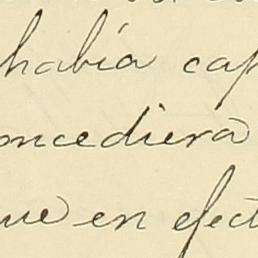 había cap
oncediera
ue en efect